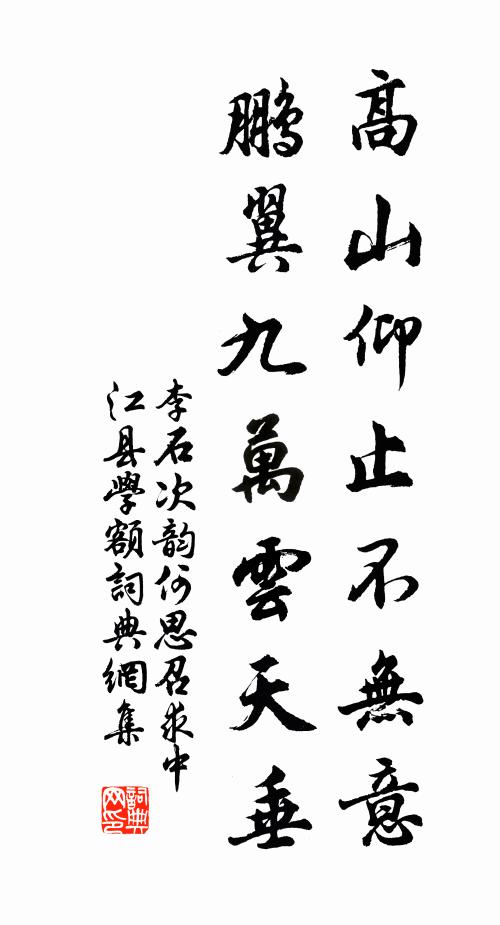 高山仰止不無意
鵬翼九萬雲天垂
李石次韵何思召求中
江县學額詞典網集
詞典
网印